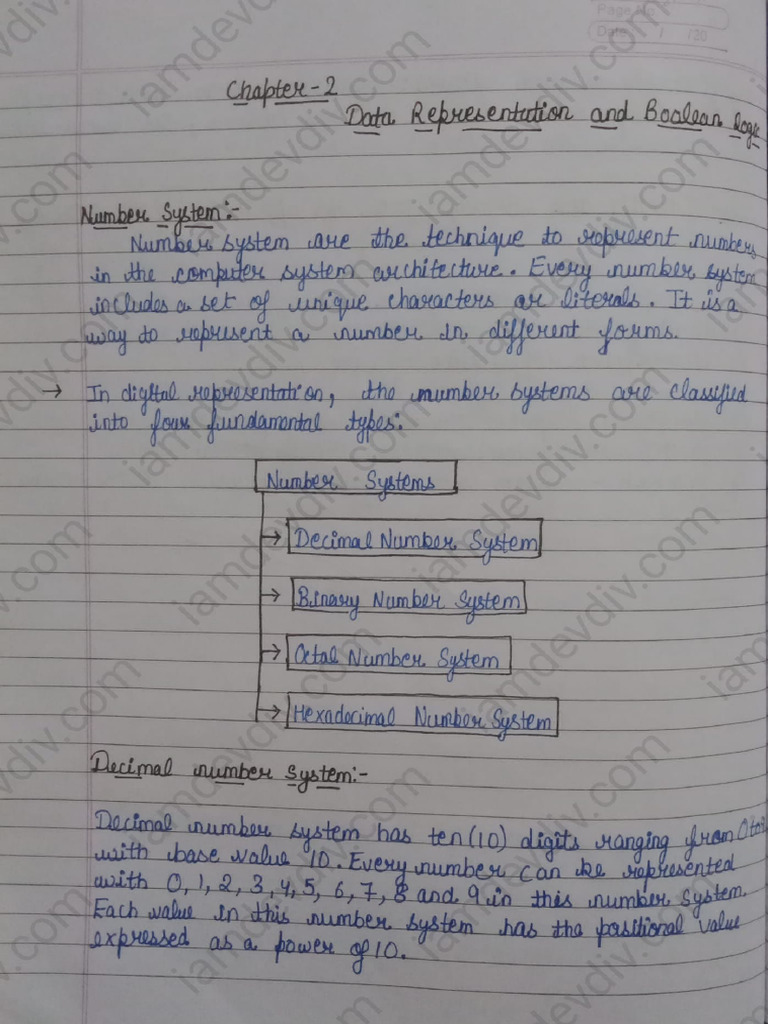 Page No.
Date / /20
Chapter-2
Data Representation and Boolean logic
Number System:-
Number system are the technique to represent numbers
in the computer system architecture. Every number system
includes a set of unique characters or literals. It is a
way to represent a number in different forms.
→ In digital representation, the number systems are classified
into four fundamental types:
Number Systems
→ Decimal Number System
→ Binary Number System
→ Octal Number System
→ Hexadecimal Number System
Decimal number System:-
Decimal number system has ten (10) digits ranging from 0 to 9
with base value 10. Every number can be represented
with 0, 1, 2, 3, 4, 5, 6, 7, 8 and 9 in this number system.
Each value in this number system has the positional value
expressed as a power of 10.
iamdevdiv.com